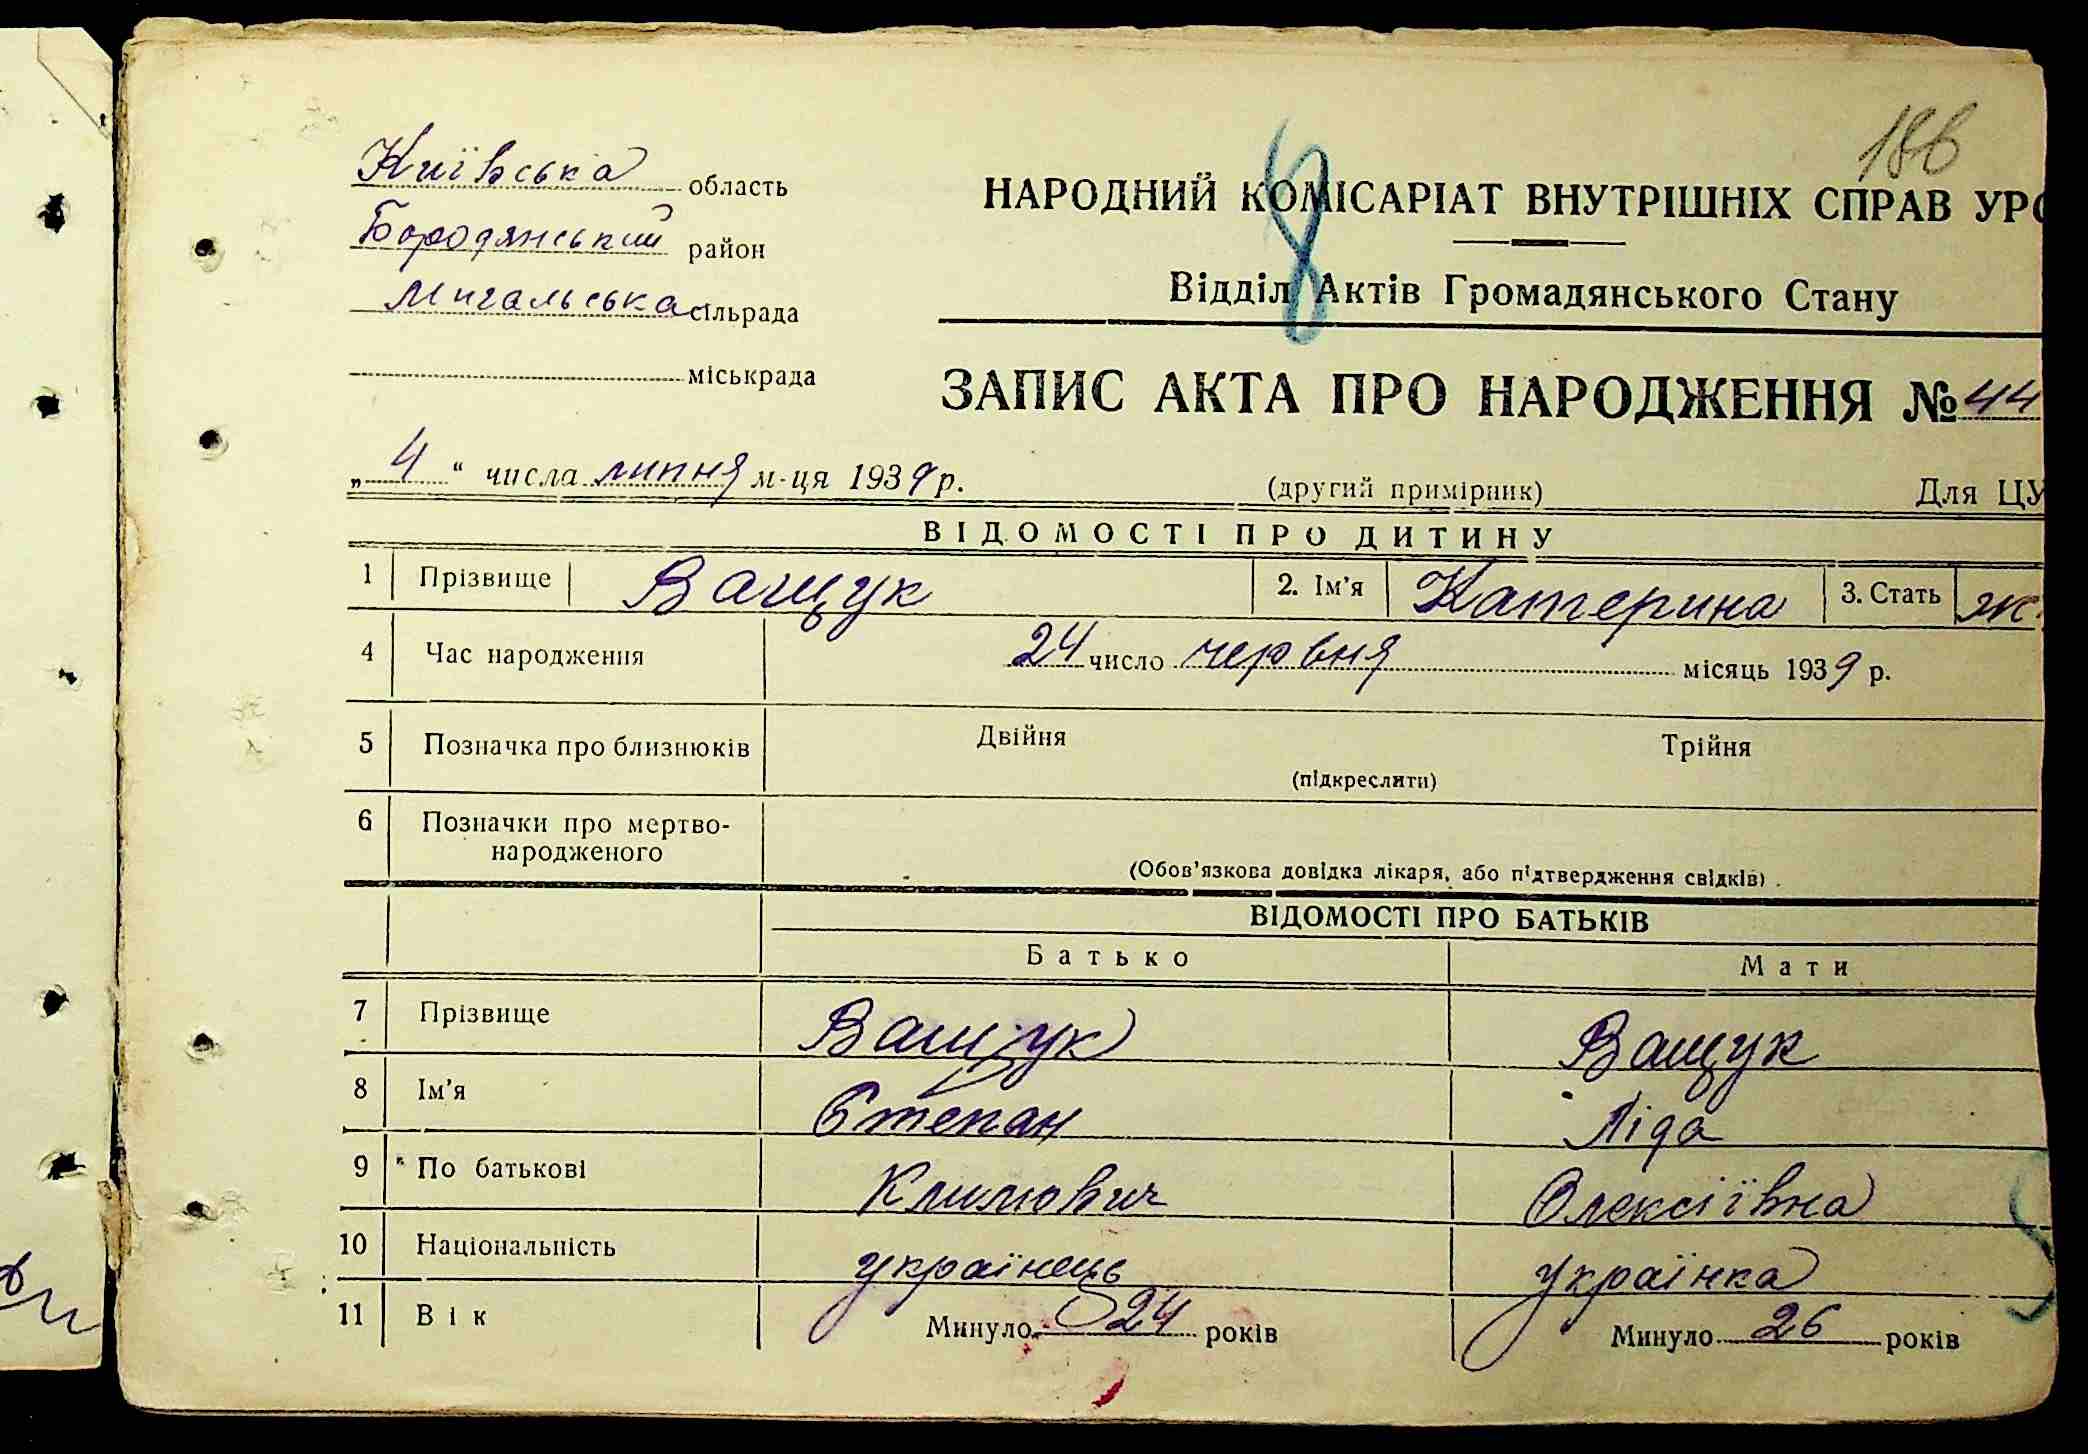 186
Київська область
Бородянський район
Мигальська сільрада
міськрада
НАРОДНИЙ КОМІСАРІАТ ВНУТРІШНІХ СПРАВ УРС
8
Відділ Актів Громадянського Стану
ЗАПИС АКТА ПРО НАРОДЖЕННЯ № 44
„ 4 “ числа липня м-ця 1939 р.
(другий примірник) Для ЦУ
ВІДОМОСТІ ПРО ДИТИНУ
1 Прізвище Ващук 2. Ім’я Катерина 3. Стать ж.
4 Час народження 24 число червня місяць 1939 р.
5 Позначка про близнюків Двійня Трійня
(підкреслити)
6 Позначки про мертво-
народженого
(Обов’язкова довідка лікаря, або підтвердження свідків)
ВІДОМОСТІ ПРО БАТЬКІВ
Батько Мати
7 Прізвище Ващук Ващук
8 Ім’я Степан Ліда
9 По батькові Климович Олексіївна
10 Національність українець українка
11 Вік Минуло 24 років Минуло 26 років